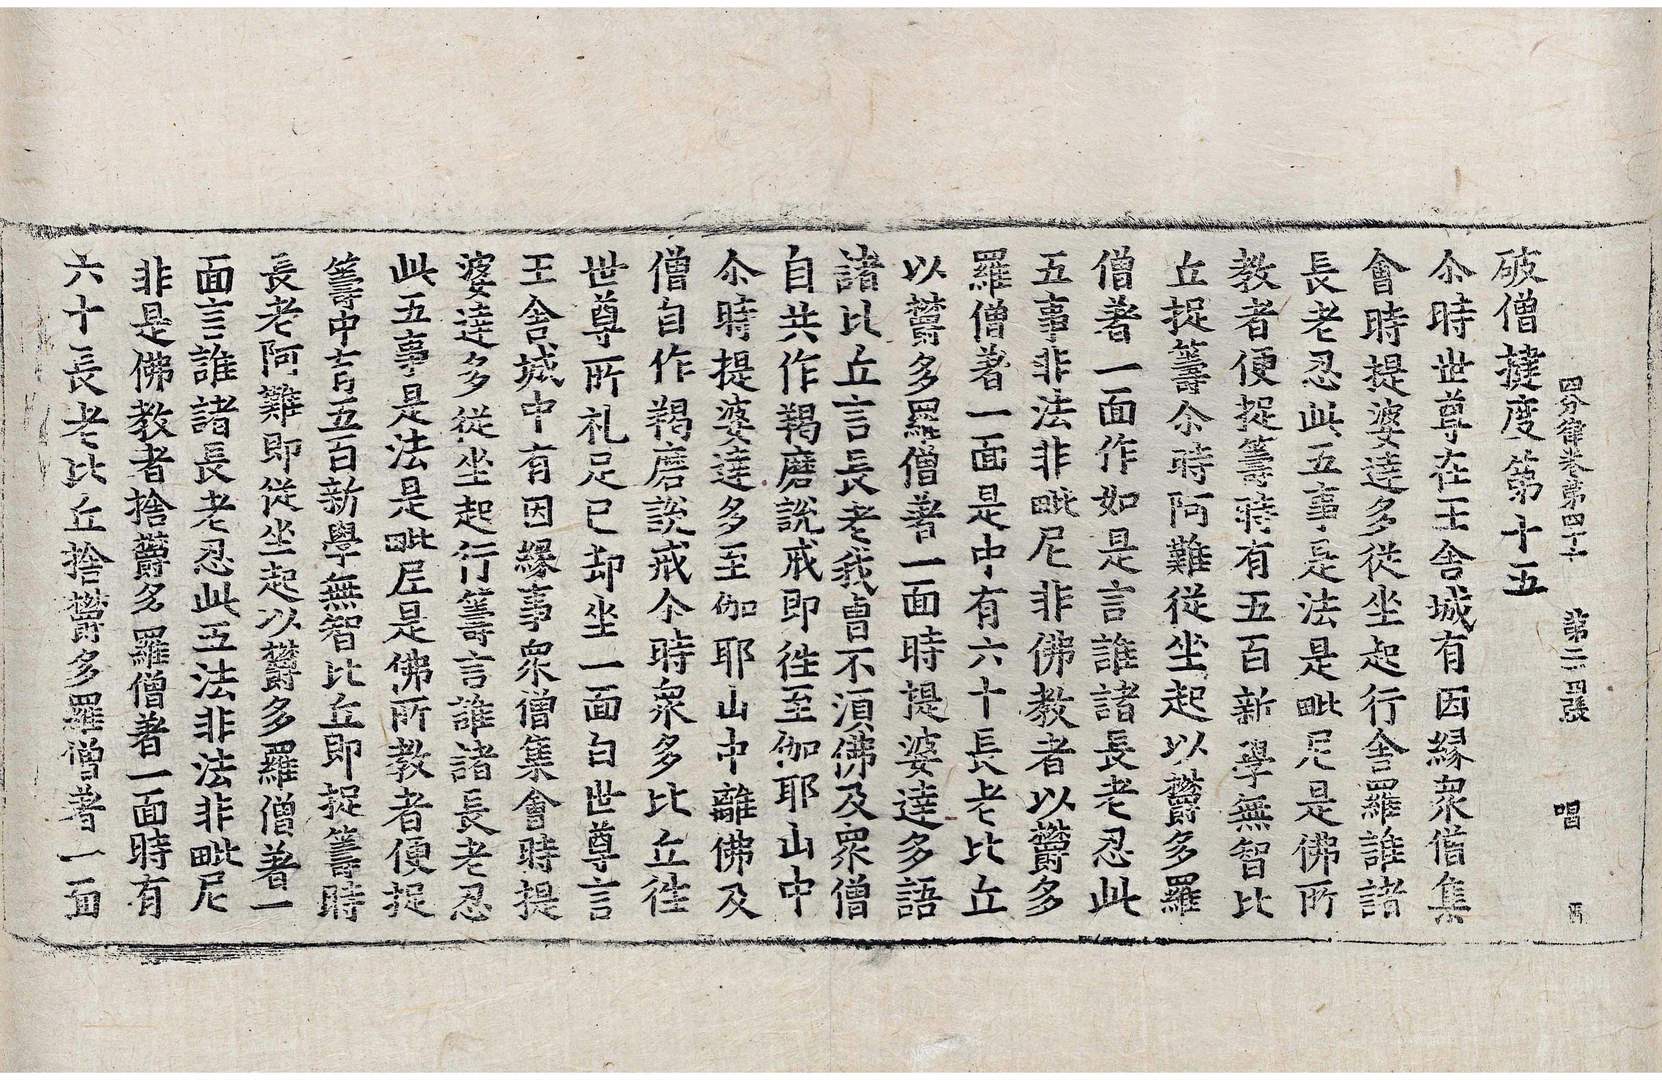 四分律卷第四十六 第二四張 唱
破僧揵度第十五
尒時世尊在王舍城有因緣衆僧集
會時提婆達多從坐起行舍羅誰諸
長老忍此五事是法是毗尼是佛所
教者便捉籌時有五百新學無智比
丘捉籌尒時阿難從坐起以欝多羅
僧著一面作如是言誰諸長老忍此
五事非法非毗尼非佛教者以欝多
羅僧著一面是中有六十長老比丘
以欝多羅僧著一面時提婆達多語
諸比丘言長老我曹不湏佛及衆僧
自共作羯磨說戒即徃至伽耶山中
尒時提婆達多至伽耶山中離佛及
僧自作羯磨說戒尒時衆多比丘徃
世尊所礼足已却坐一面白世尊言
王舍城中有因緣事衆僧集會時提
婆達多從坐起行籌言誰諸長老忍
此五事是法是毗尼是佛所教者便捉
籌中有五百新學無智比丘即捉籌時
長老阿難即從坐起以欝多羅僧著一
面言誰諸長老忍此五法非法非毗尼
非是佛教者捨欝多羅僧著一面時有
六十長老比丘捨欝多羅僧著一面